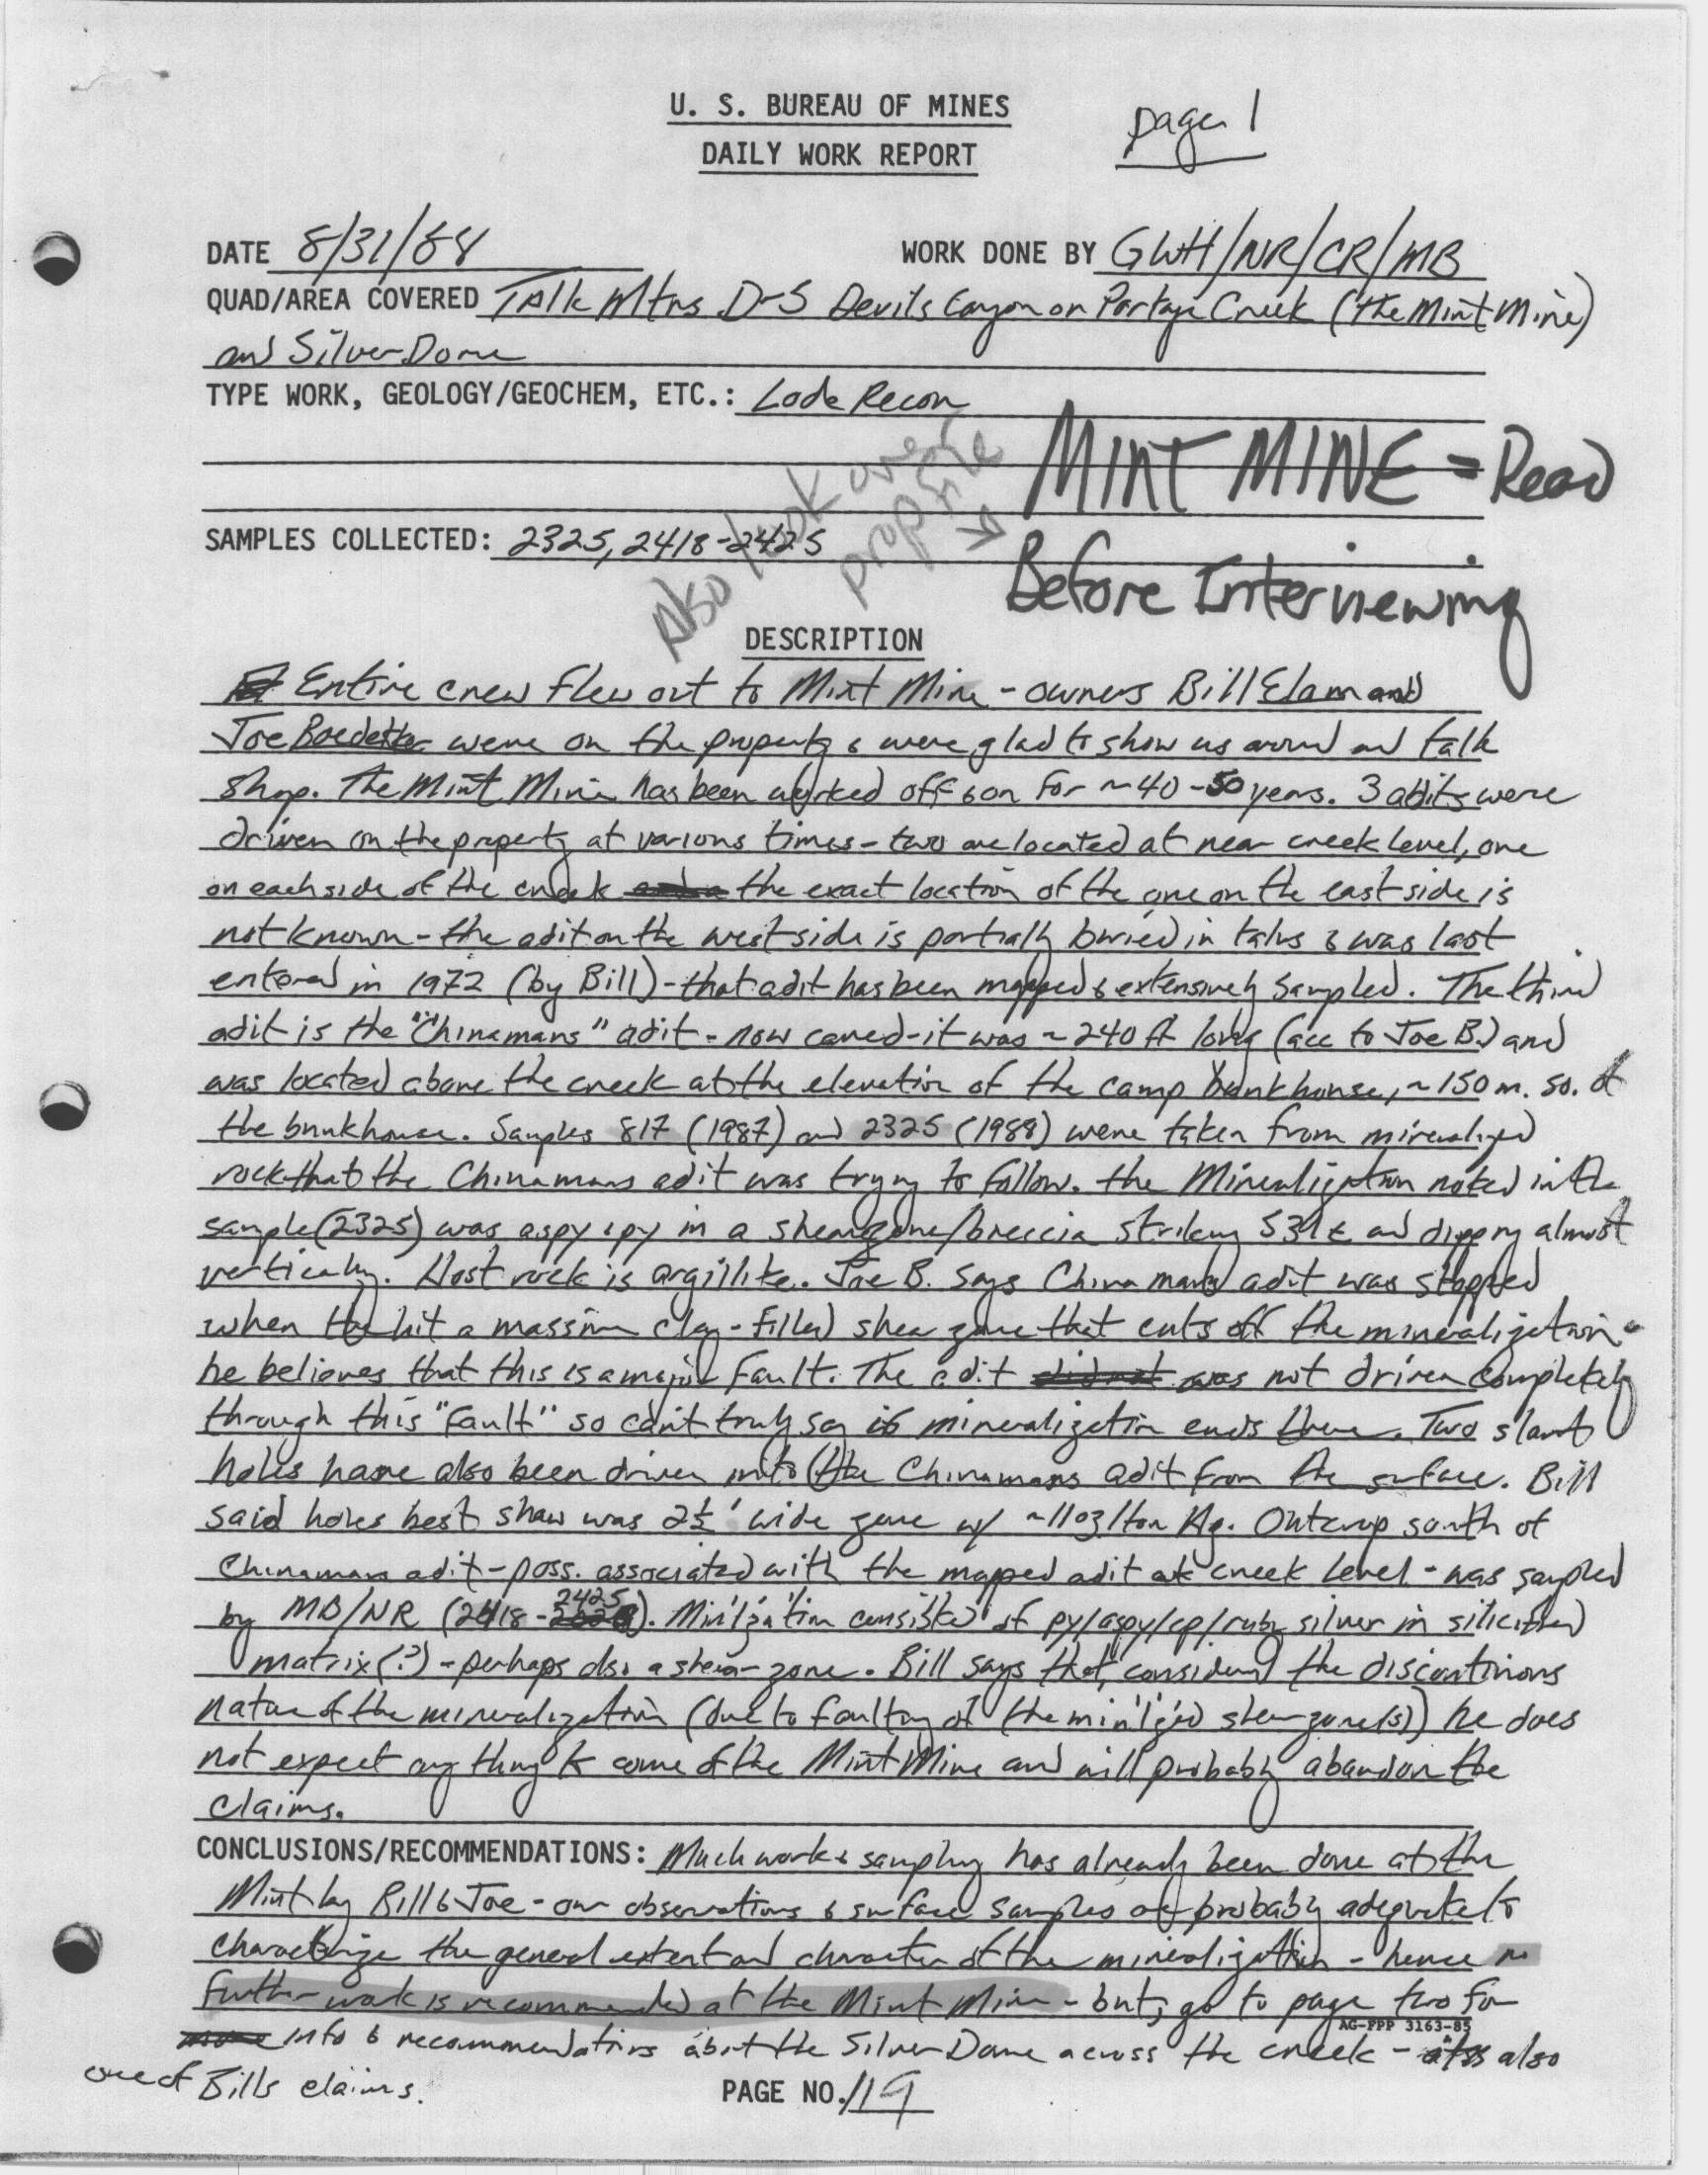 U. S. BUREAU OF MINES
DAILY WORK REPORT
page 1
DATE 8/31/88
WORK DONE BY GWH/NR/CR/MB
QUAD/AREA COVERED Talk Mtns D-5 Devils Canyon on Portage Creek (the Mint Mine)
and Silver Dome
TYPE WORK, GEOLOGY/GEOCHEM, ETC.: Lode Recon
Also look over
prop file →
MINT MINE = Read
Before Interviewing
SAMPLES COLLECTED: 2325, 2418-2425
DESCRIPTION
Entire crew flew out to Mint Mine - owners Bill Elam and
Joe Boedetter were on the property & were glad to show us around and talk
shop. The Mint Mine has been worked off & on for ~40-50 years. 3 adits were
driven on the property at various times - two are located at near creek level, one
on each side of the creek the exact location of the one on the east side is
not known - the adit on the west side is partially buried in talus & was last
entered in 1972 (by Bill) - that adit has been mapped & extensively sampled. The third
adit is the "Chinamans" adit - now caved - it was ~240 ft long (acc to Joe B.) and
was located above the creek at the elevation of the camp bunkhouse, ~150 m. so. of
the bunkhouse. Samples 817 (1987) and 2325 (1988) were taken from mineralized
rock that the Chinamans adit was trying to follow. the Mineralization noted in the
sample (2325) was aspy & py in a shearzone/breccia striking S39E and dipping almost
vertically. Host rock is argillite. Joe B. says Chinamans adit was stopped
when they hit a massive clay-filled shear zone that cuts off the mineralization -
he believes that this is a major fault. The adit was not driven completely
through this "fault" so can't truly say if mineralization ends there. Two slant
holes have also been driven into the Chinamans adit from the surface. Bill
said holes best show was 2½' wide zone w/ ~11oz/ton Ag. Outcrop south of
Chinamans adit - poss. associated with the mapped adit at creek level - was sampled
by MB/NR (2418-2425). Min'lzation consisted of py/aspy/cp/ruby silver in silicified
matrix(?) - perhaps also a shear-zone. Bill says that, considering the discontinous
nature of the mineralization (due to faulting of the min'lized shear zone(s)) he does
not expect anything to come of the Mint Mine and will probably abandon the
claims.
CONCLUSIONS/RECOMMENDATIONS: Much work & sampling has already been done at the
Mint by Bill & Joe - our observations & surface samples are probably adequate to
characterize the general extent and character of the mineralization - hence no
further work is recommended at the Mint Mine - but, go to page two for
AG-FPP 3163-85
info & recommendations about the Silver Dome across the creek - also
one of Bills claims.
PAGE NO. 119